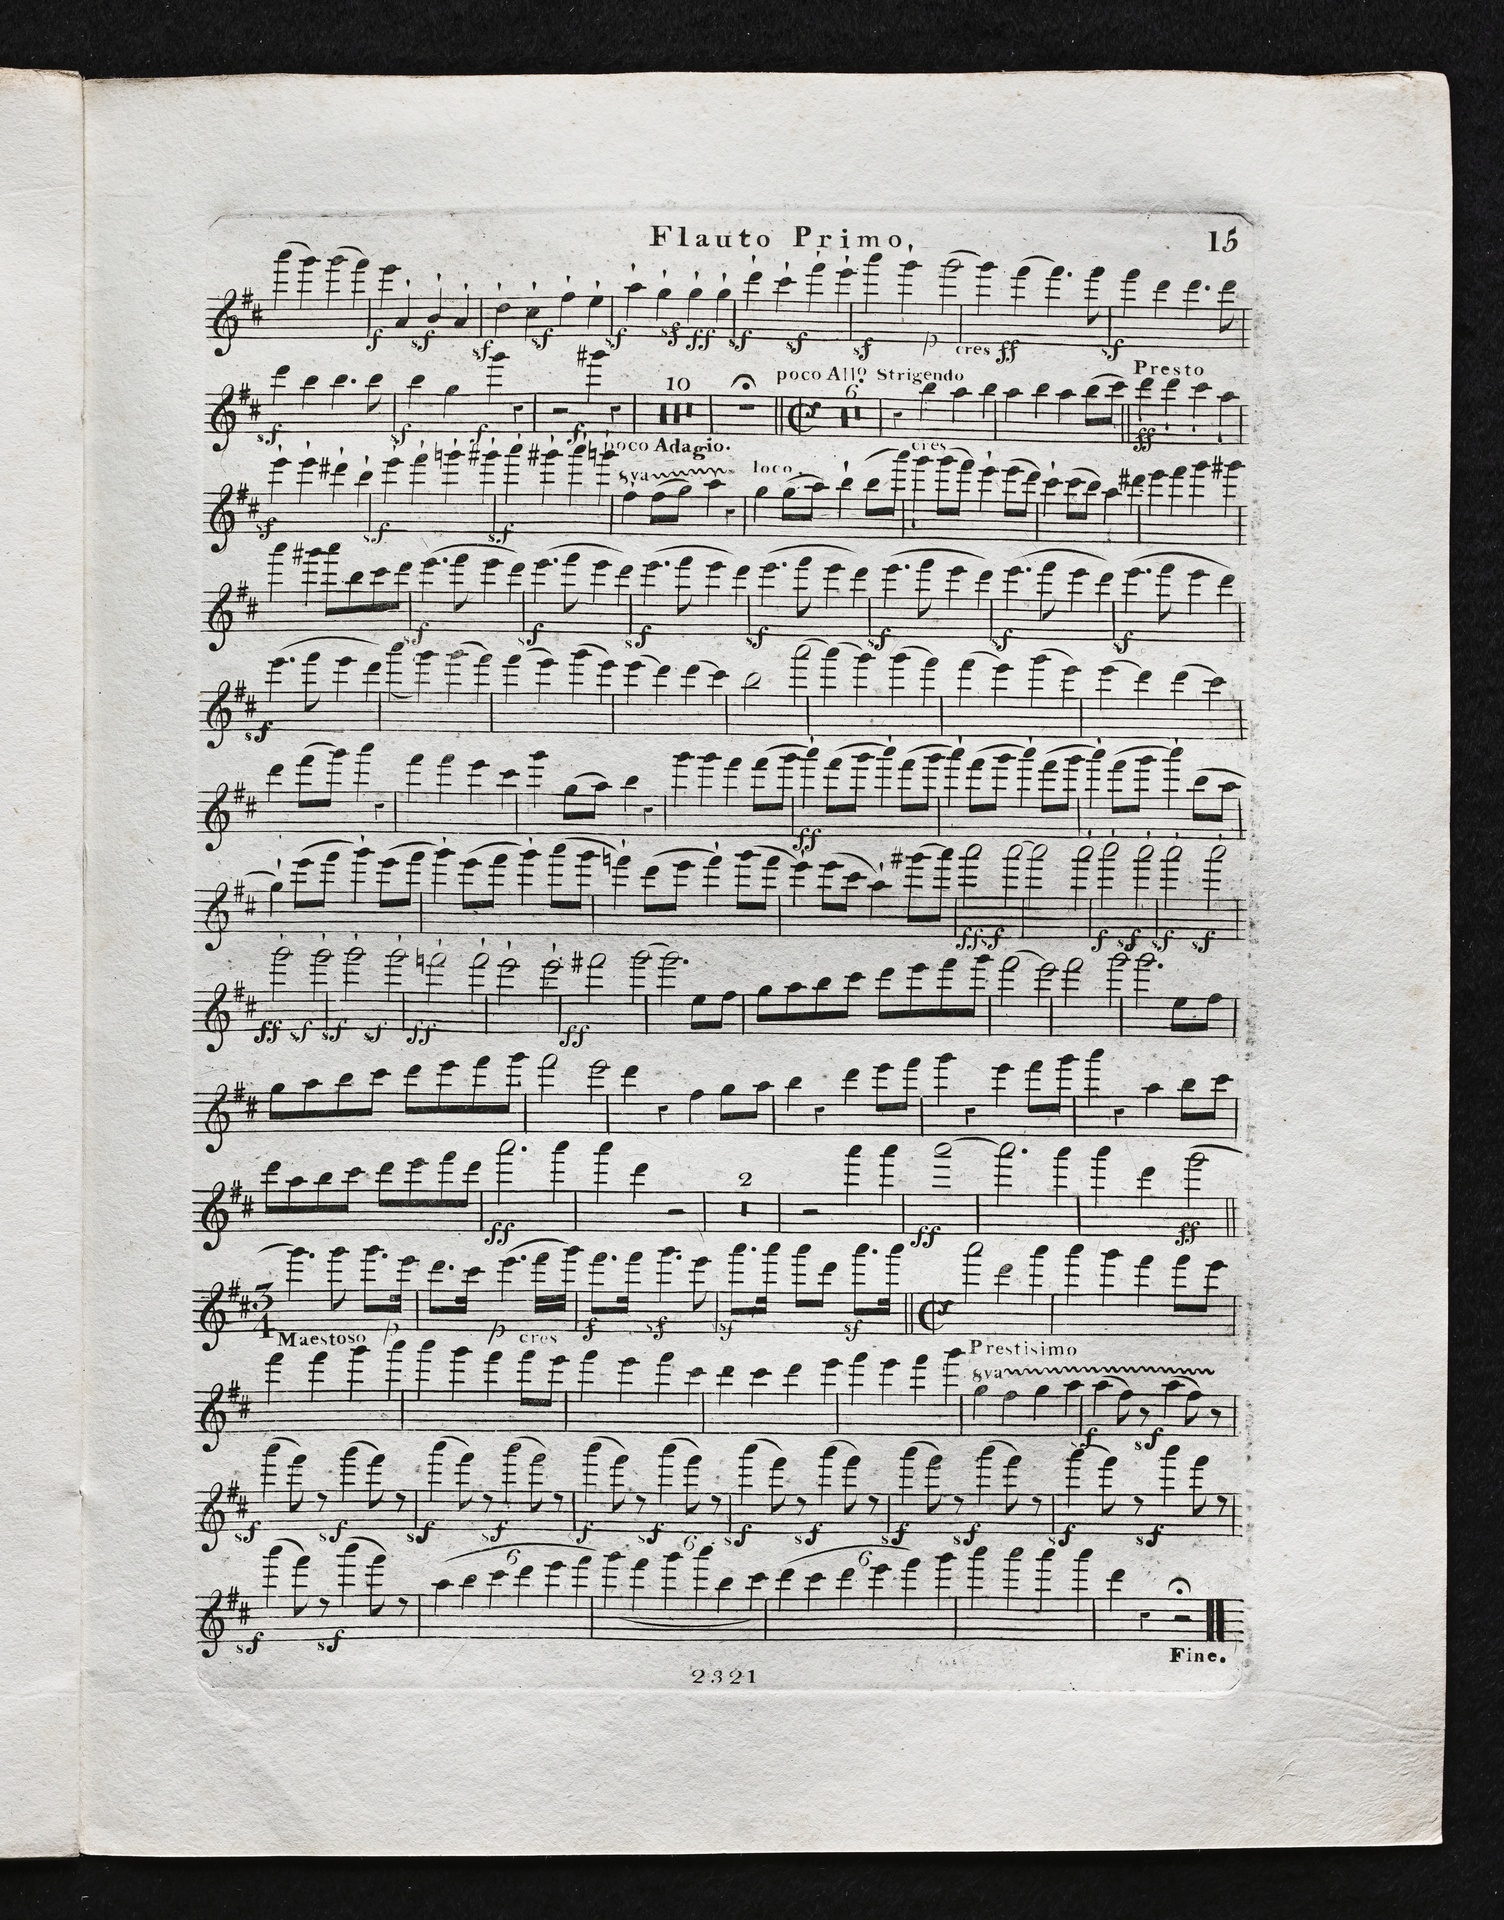 Flauto Primo, 15
f sf sf sf sf sf ff sf sf sf p cres ff sf
10 poco Allº. Strigendo 6 Presto
sf sf sf f poco Adagio. ff
8va loco. cres
sf sf sf
sf sf sf sf sf sf sf
sf
ff
ff sf f sf sf sf
ff sf sf sf ff ff
2
ff ff ff
3
4
Maestoso p p cres f sf sf sf
Prestisimo
8va
sf sf
sf sf sf sf f sf sf sf sf sf sf sf
6 6 6
sf sf
Fine.
2321